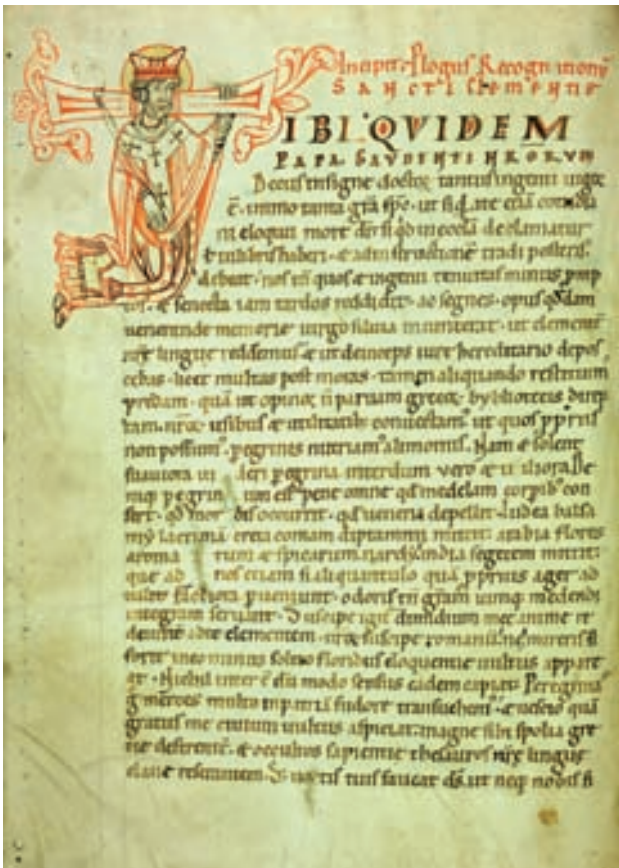 Incipit Plogus Recognitionū
SANCTI Clementis
IBI QVIDEM
PAPA GAVDENTI NRORVM
decus insigne doctoȝ tantus ingenii uigor
ē. immo tanta grā spc. ut siqd etiā cotidia
ni eloquii more
in libris haberi. & ad instructionē tradi posteris
debeat. nos quos & ingenii tenuitas minus pmp
tos. & senecta iam tardos reddidit. ac segnes. opus qdam
uenerande memorie uirgo siluia iniunxerat. ut clementē
nrē lingue redderemus & ut deinceps iure hereditario depos
cebas. licet multas post moras. tamen aliquando restituim
predam. quā ut opinor ñ paruam grecoȝ bybliotecis direp
tam. usibus & utilitatib conuectam. ut quos ppriis
non possum. pegrinis nutriam alimoniis. Nam & solent
suauiora ui deri pegrina interdum uero & utiliora De
niq pegrin um est pene omne qd medelam corpib con
fert. qd mor bis occurrit. qd uenena depellit. Iudea balsa
mȳ lacrimā. creta comam diptamni mittit. arabia florē
aroma tum & spicarum nardȳ. india segetem mittit.
que ad nos etiam si aliquantulo quā pprius ager ad
pueniunt. odoris tn grām uimq medendi
integram seruant. Suscipe igit dimidium mee anime
clementem. suscipe romanū. ne mireris si
forte in eo minus solito floridus eloquentie uultus appare
at. Nichil interē dū modo sensus eadem capiat. Peregrinas
g merces multo in patriā sudore transuehim. & nescio quā
gratus me ciuium uultus aspiciat. magne sibi spolia gre
cie deferentē. & occultos sapientie thesauros nrē lingue
claue reserantem.